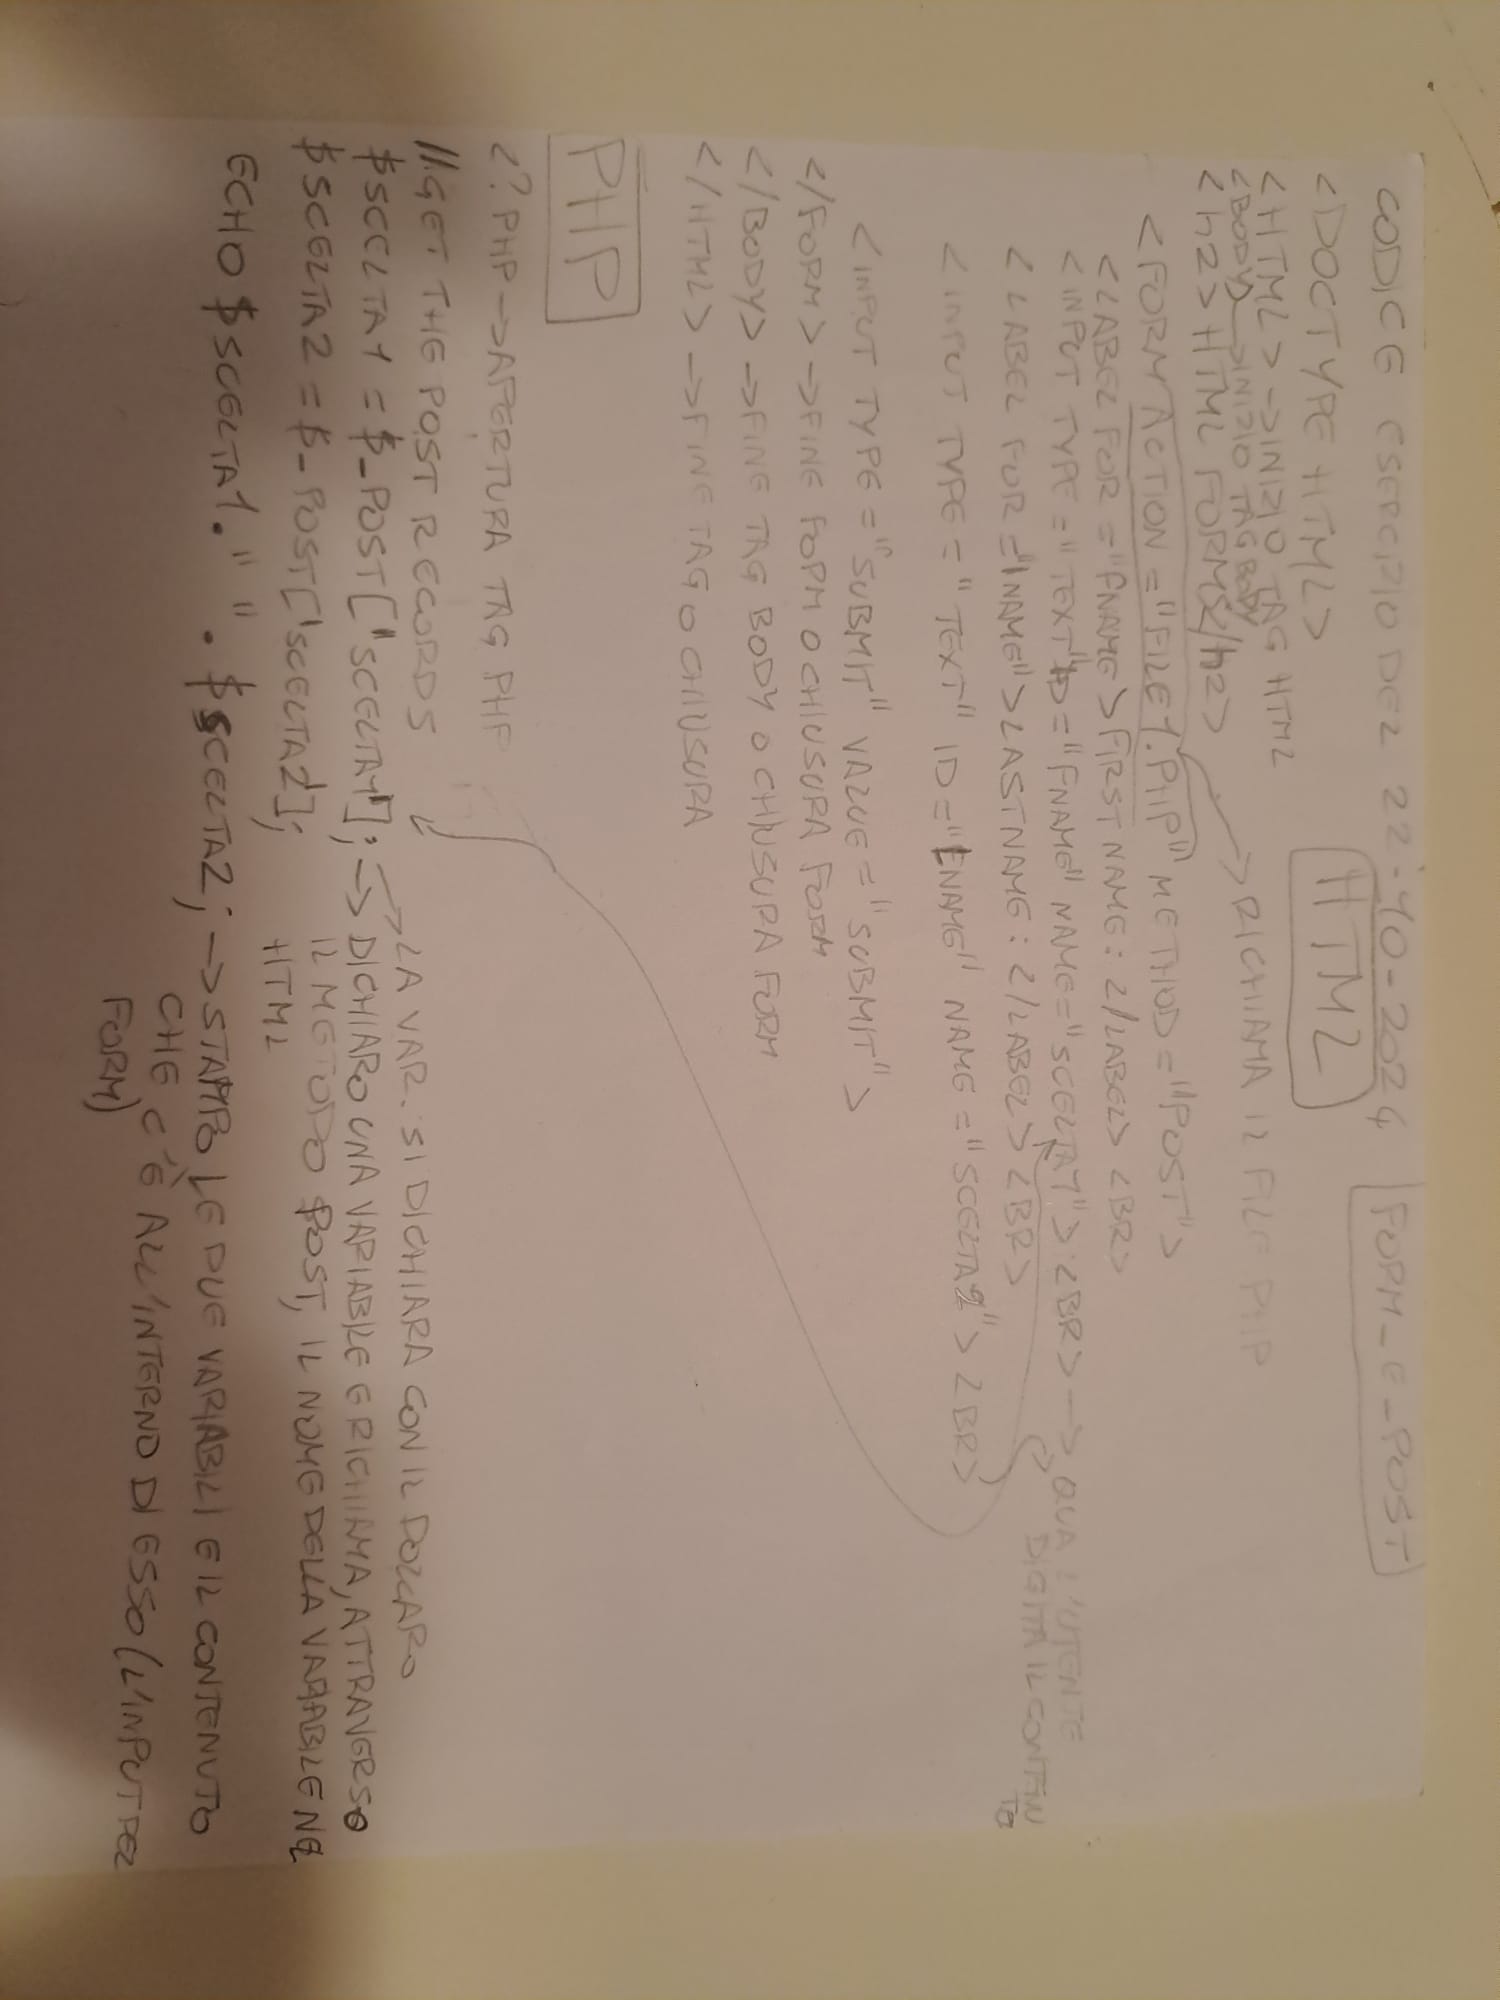 CODICE ESERCIZIO DEL 22-10-2024 FORM_E_POST
HTML
<DOCTYPE HTML>
<HTML> -> INIZIO TAG HTML
<BODY> -> INIZIO TAG BODY
<h2> HTML FORMS</h2>
-> RICHIAMA IL FILE PHP
<FORM ACTION ="FILE1.PHP" METHOD ="POST">
<LABEL FOR ="FNAME> FIRST NAME: </LABEL> <BR>
<INPUT TYPE ="TEXT" ID ="FNAME" NAME="SCELTA1"> <BR> -> QUA L'UTENTE
DIGITA IL CONTENU
TO
<LABEL FOR ="lNAME">LASTNAME: </LABEL> <BR>
<INPUT TYPE = "TEXT" ID ="LNAME" NAME ="SCELTA2"> <BR>
<INPUT TYPE ="SUBMIT" VALUE ="SUBMIT">
</FORM> -> FINE FORM O CHIUSURA FORM
</BODY> -> FINE TAG BODY O CHIUSURA FORM
</HTML> -> FINE TAG O CHIUSURA
PHP
<? PHP -> APERTURA TAG PHP
//GET THE POST RECORDS
$SCELTA1 = $_POST["SCELTA1"]; -> LA VAR. SI DICHIARA CON IL DOLLARO
-> DICHIARO UNA VARIABILE E RICHIAMA, ATTRAVERSO
IL METODO POST, IL NOME DELLA VARIABILE NEL
HTML
$SCELTA2 = $_POST['SCELTA2'];
ECHO $SCELTA1." ". $SCELTA2; -> STAMPO LE DUE VARIABILI E IL CONTENUTO
CHE C'È ALL'INTERNO DI ESSO (L'INPUT DEL
FORM)